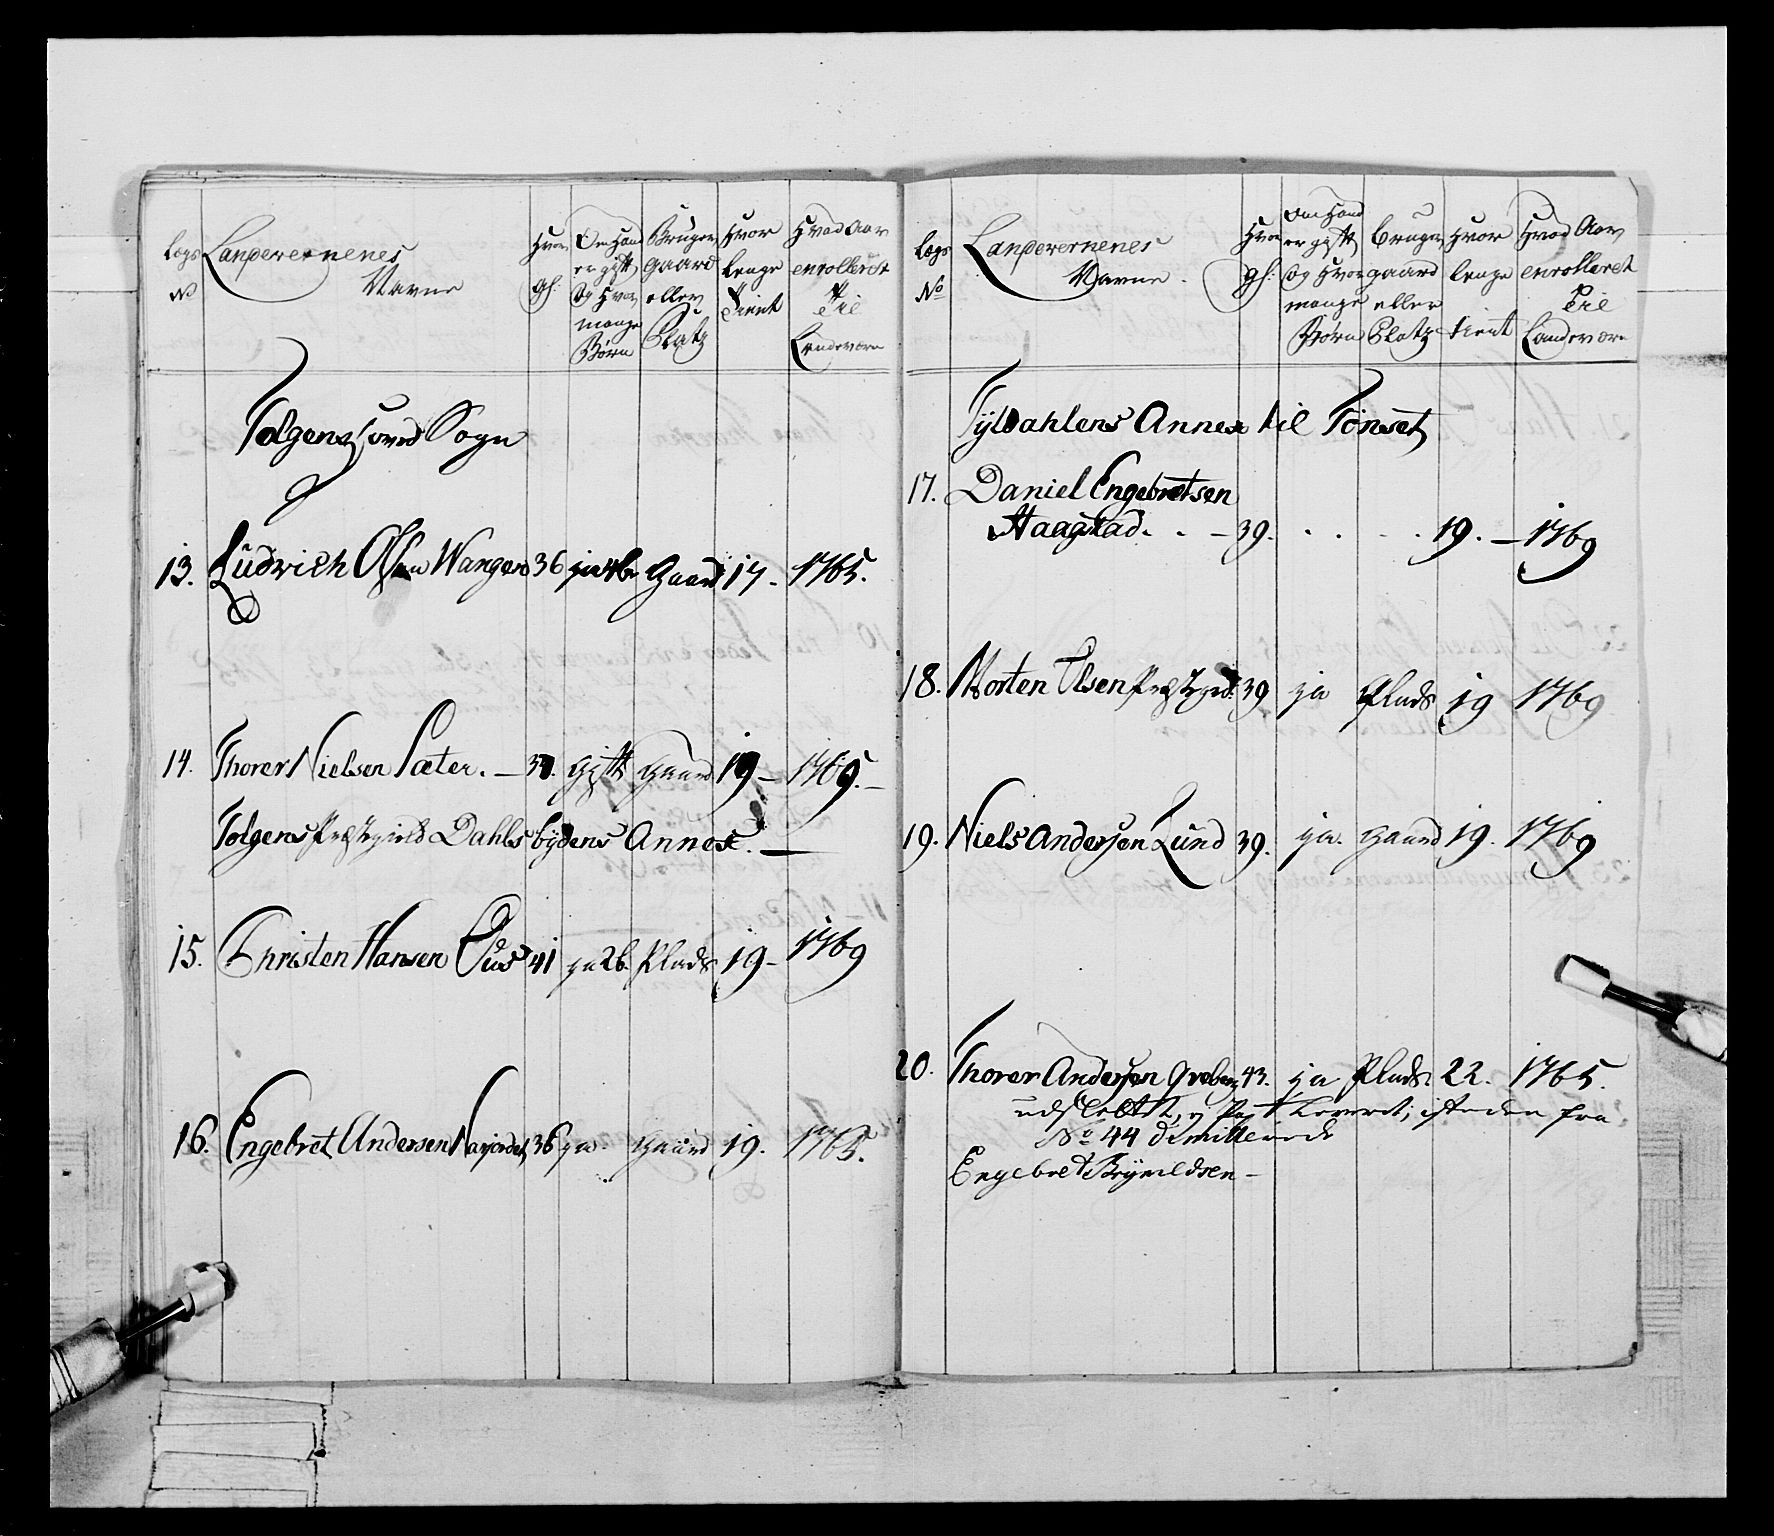 Legs
No
Landevernenes
Navne
Hvor
gl:
Om Hand
er gift
og Hvor
mange
Børn
Bruger
Gaard
eller
Platz
Hvor
lenge
Tient
Hvad Aar
enrolleret
Til
Landevern
Tolgens hoved Sogn
13. Ludvich Olsen Wangen 36 ja 4 b. Gaard 17. 1765.
14. Thorer Nielsen Sæter. — gift Gaard 19 — 1769. —
Tolgens Præstgield Dahlsbydens Annex. —
15. Christen Hansen Ous 41 ja 2 b. Plads 19 – 1769
16. Engebret Andersen Narjordet 36 ja. Gaard 19. 1765.
Legs
No
Landevernenes
Navne.
Hvor
gl:
Om Hand
er gift
og Hvor
mange
Børn
Bruger
gaard
eller
Platz
Hvor
lenge
tient
Hvad Aar
enrolleret
Til
Landevern
Tyldahlens Annex til Tønset
17. Daniel Engebretsen
Haagstad. . – 39. . . . . 19. – 1769
18. Morten Olsen Præstgrd: 39 ja Plads 19 1769
19. Niels Andersen Lund 39. ja. Gaard 19. 1769
20. Thorer Andersen 43. ja Plads. 22. 1765.
udslettet, ej Pas leveret; isteden fra
No 44 dimitterede
Engebret Brynildsen –